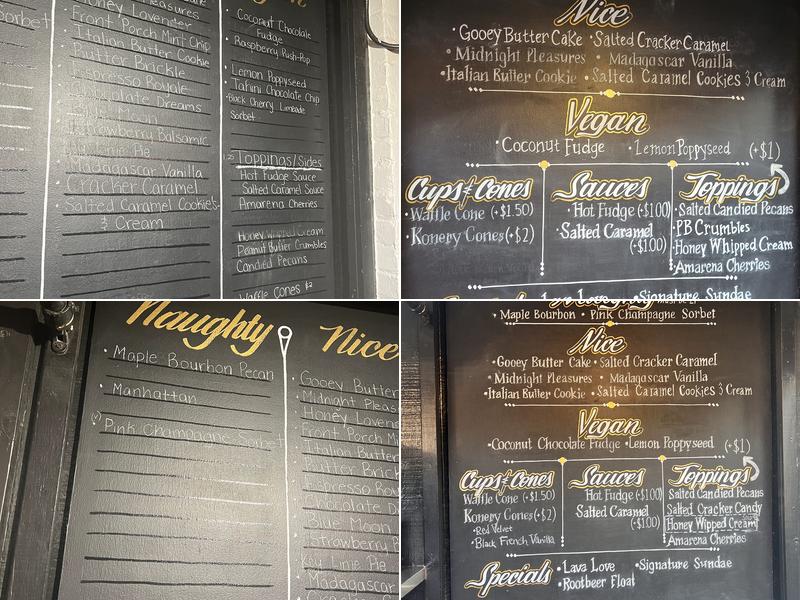 Pleasures
Honey Lavender
Sorbet
Front Porch Mint Chip
Italian Butter Cookie
Butter Brickle
Espresso Royale
Chocolate Dreams
Moon
Strawberry Balsamic
Pie
Madagascar Vanilla
Cracker Caramel
• Salted Caramel Cookies
& Cream
• Coconut Chocolate
Fudge
• Raspberry Push-Pop
• Lemon Poppyseed
• Tahini Chocolate Chip
• Black Cherry Limeade
Sorbet
Toppings/Sides
Hot Fudge Sauce
Salted Caramel Sauce
Amarena Cherries
Honey Whipped Cream
Peanut Butter Crumbles
Candied Pecans
Waffle Cones $2
Nice
• Gooey Butter Cake • Salted Cracker Caramel
• Midnight Pleasures • Madagascar Vanilla
• Italian Butter Cookie • Salted Caramel Cookies & Cream
Vegan
• Coconut Fudge • Lemon Poppyseed (+$1)
Cups & Cones
• Waffle Cone (+$1.50)
• Konery Cones (+$2)
Sauces
• Hot Fudge (+$1.00)
• Salted Caramel
(+$1.00)
Toppings
• Salted Candied Pecans
• PB Crumbles
• Honey Whipped Cream
• Amarena Cherries
• Signature Sundae
Naughty
• Maple Bourbon Pecan
• Manhattan
(V) Pink Champagne Sorbet
Nice
Gooey Butter
Midnight Pleas
Honey Laven
Front Porch M
Italian Butter
Butter Brick
Espresso Roy
Chocolate D
Blue Moon
Strawberry B
Key Lime Pie
Madagascar
• Maple Bourbon • Pink Champagne Sorbet
Nice
• Gooey Butter Cake • Salted Cracker Caramel
• Midnight Pleasures • Madagascar Vanilla
• Italian Butter Cookie • Salted Caramel Cookies & Cream
Vegan
• Coconut Chocolate Fudge • Lemon Poppyseed (+$1)
Cups & Cones
Waffle Cone (+$1.50)
Konery Cones (+$2)
• Red Velvet
• Black French Vanilla
Sauces
Hot Fudge (+$1.00)
Salted Caramel
(+$1.00)
Toppings
Salted Candied Pecans
Salted Cracker Candy
Honey Wipped Cream
Amarena Cherries
Specials
• Lava Love • Signature Sundae
• Rootbeer Float